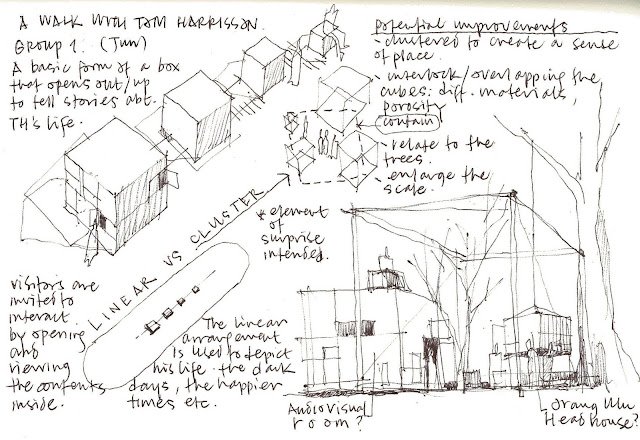 A WALK WITH TOM HARRISSON.
GROUP 1. (Jun)
A basic form of a box
that opens out/up
to tell stories abt.
TH's life.
potential improvements
- clustered to create a sense
of place.
- interlock/overlapping the
cubes: diff. materials,
porosity
contain
- relate to the
trees.
- enlarge the
scale.
* element
of
surprise
intended.
LINEAR VS CLUSTER
visitors are
invited to
interact
by opening
and
viewing
the contents
inside.
The linear
arrangement
is used to depict
his life. the dark
days, the happier
times etc.
Audiovisual
room?
Orang Ulu
Head house?